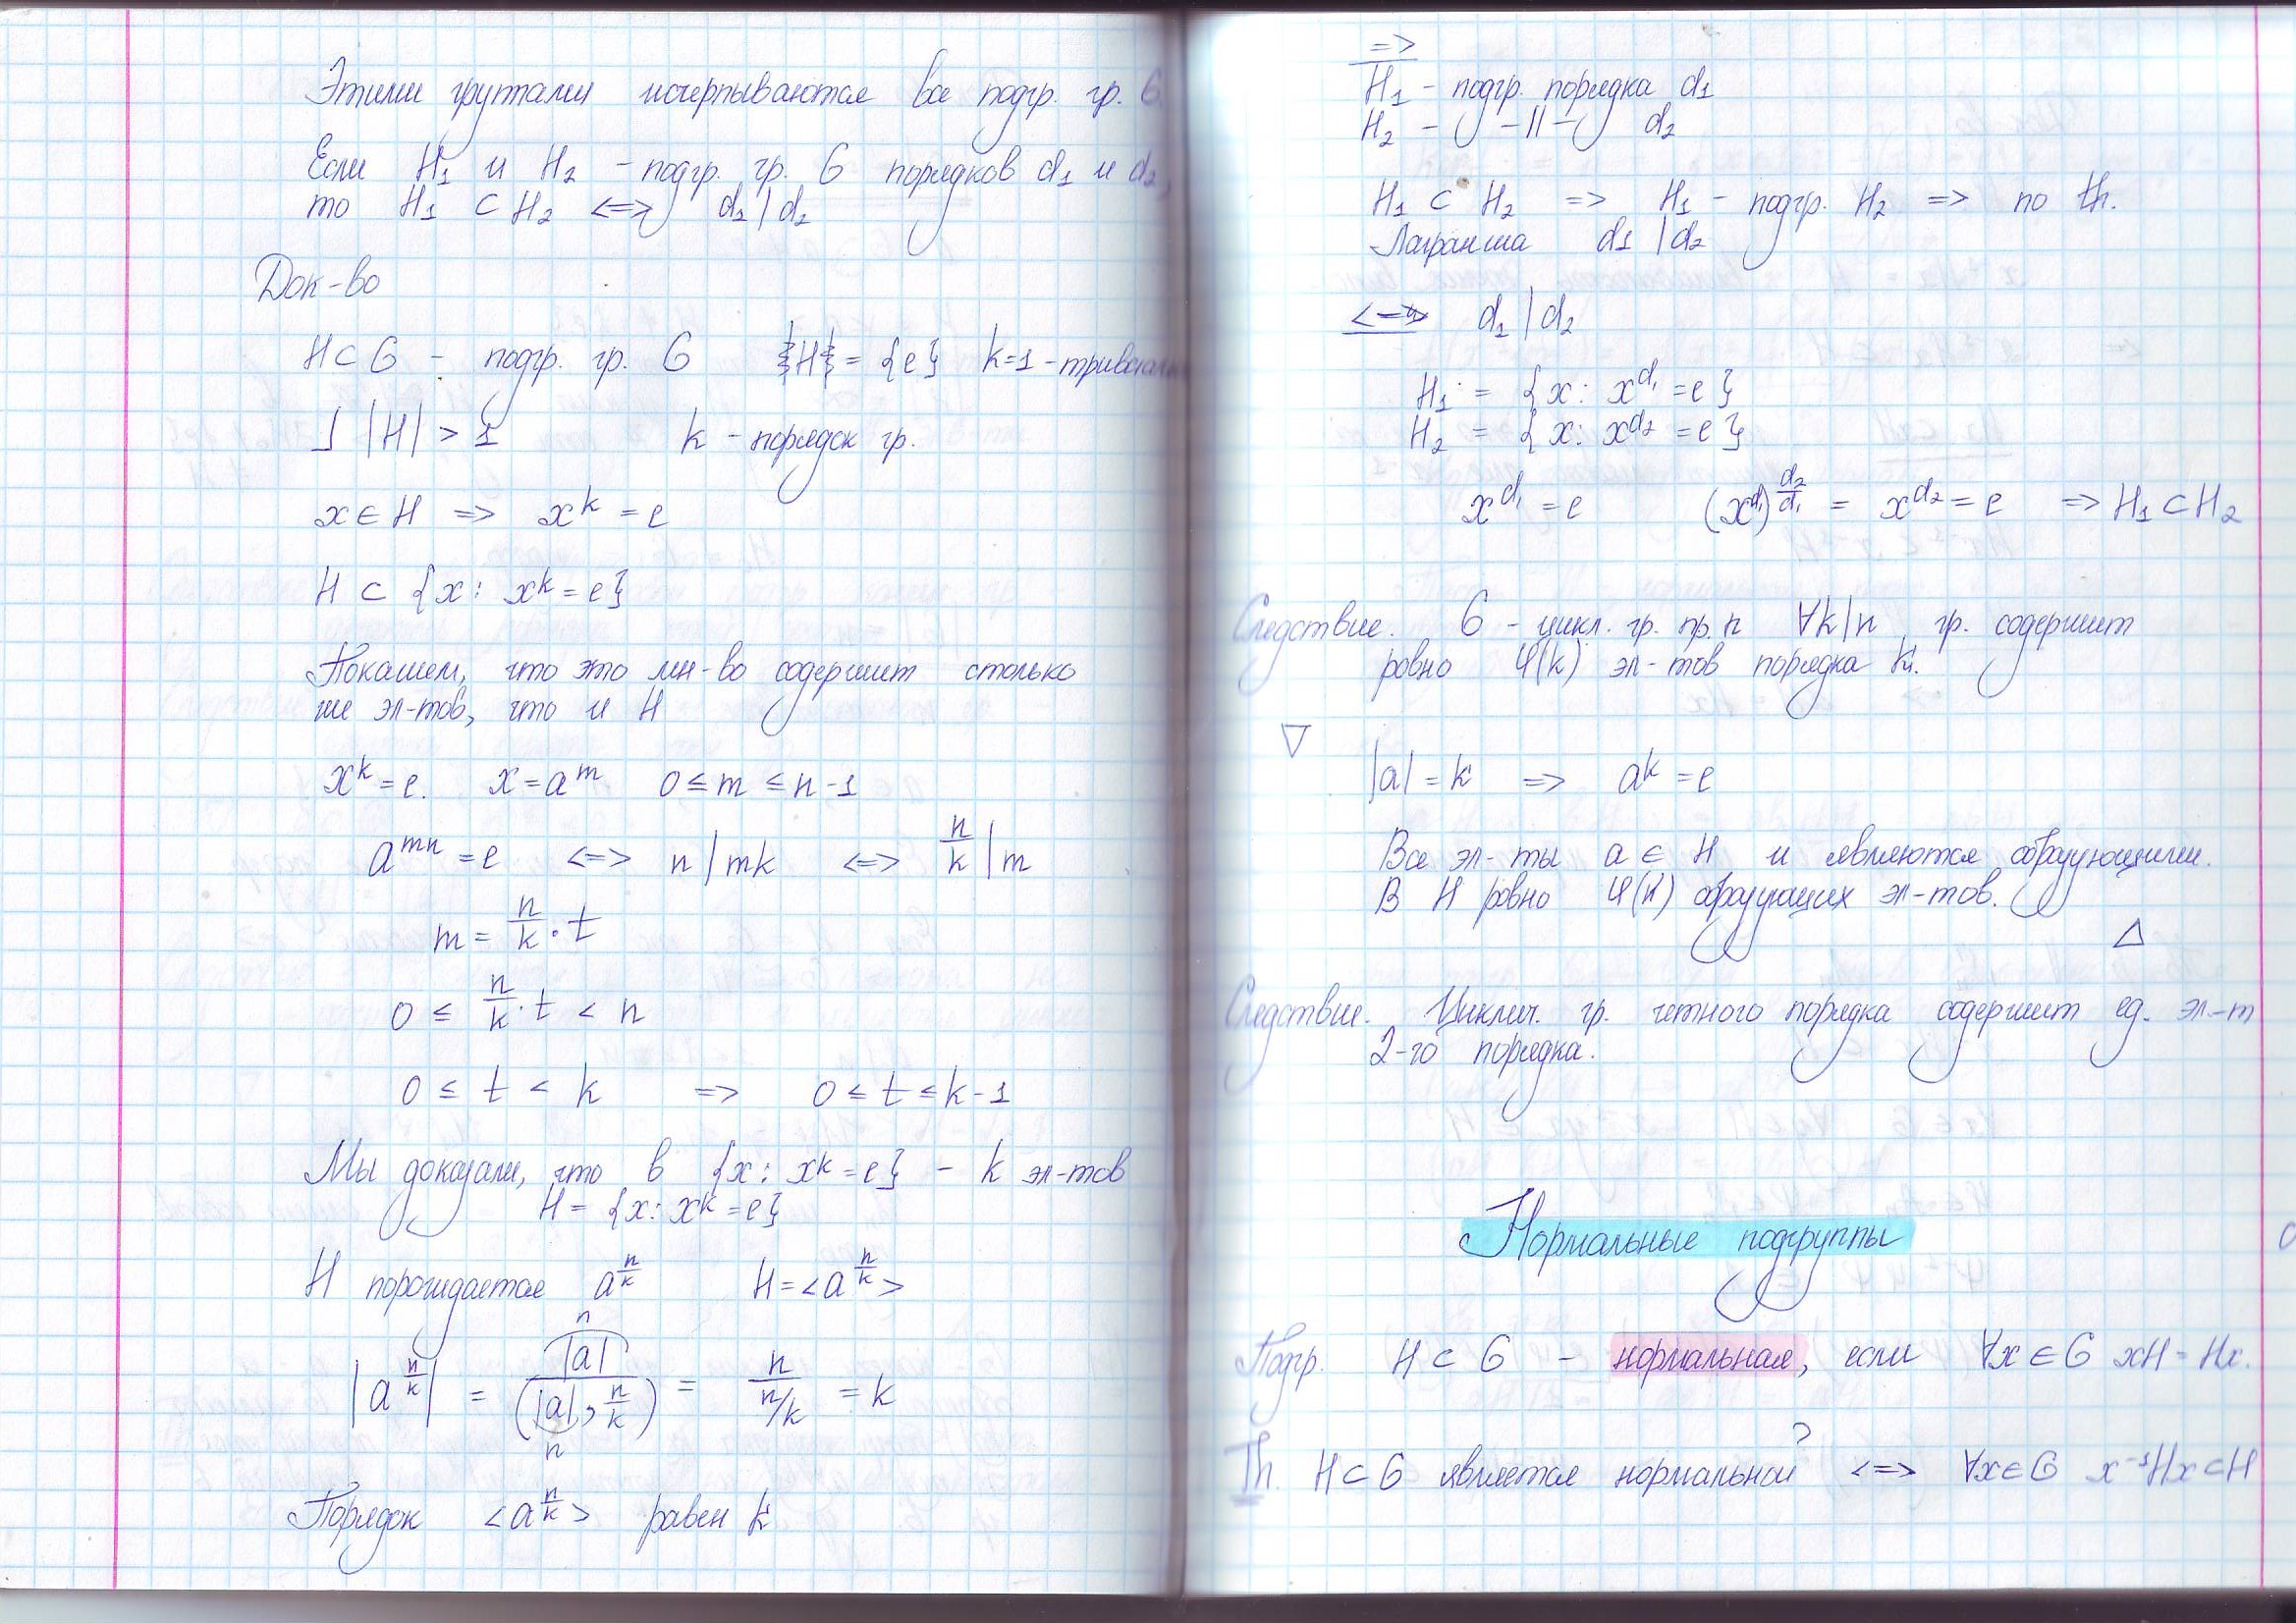 Этими группами исчерпываются все подгр. гр. G
Если H₁ и H₂ – подгр. гр. G порядков d₁ и d₂,
то H₁ ⊂ H₂ <=> d₁ | d₂
Док-во
H ⊂ G – подгр. гр. G H = {e} k=1 – тривиальн
⅃ |H| > 1 k – порядок гр.
x ∈ H => xᵏ = e
H ⊂ {x : xᵏ = e}
Покажем, что это мн-во содержит столько
же эл-тов, что и H
xᵏ = e. x = aᵐ 0 ≤ m ≤ n-1
a^{mn} = e <=> n | mk <=> n/k | m
m = n/k · t
0 ≤ n/k · t < n
0 ≤ t < k => 0 ≤ t ≤ k-1
Мы доказали, что в {x : xᵏ = e} – k эл-тов
H = {x : xᵏ = e}
H порождается a^{n/k} H = <a^{n/k}>
n
|a^{n/k}| = |a| / (|a|, n/k) = n / (n/k) = k
n
Порядок <a^{n/k}> равен k
=>
H₁ – подгр. порядка d₁
H₂ – –||– d₂
H₁ ⊂ H₂ => H₁ – подгр. H₂ => по th.
Лагранжа d₁ | d₂
<= d₁ | d₂
H₁ = {x : x^{d₁} = e}
H₂ = {x : x^{d₂} = e}
x^{d₁} = e (x^{d₁})^{d₂/d₁} = x^{d₂} = e => H₁ ⊂ H₂
Следствие. G – цикл. гр. пр. n ∀k|n гр. содержит
ровно φ(k) эл-тов порядка k.
▽
|a| = k => aᵏ = e
Все эл-ты a ∈ H и являются образующими.
В H ровно φ(k) образующих эл-тов.
△
Следствие. Циклич. гр. четного порядка содержит ед. эл-т
2-го порядка.
Нормальные подгруппы
Подгр. H ⊂ G – нормальная, если ∀x ∈ G xH = Hx.
?
Th. H ⊂ G является нормальной <=> ∀x ∈ G x⁻¹Hx ⊂ H